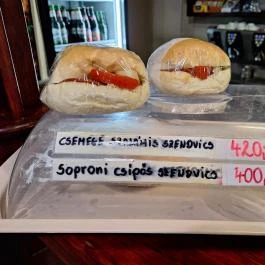 CSEMEGE SZALÁMIS SZENDVICS 420,
Soproni csípős SZENDVICS 400,